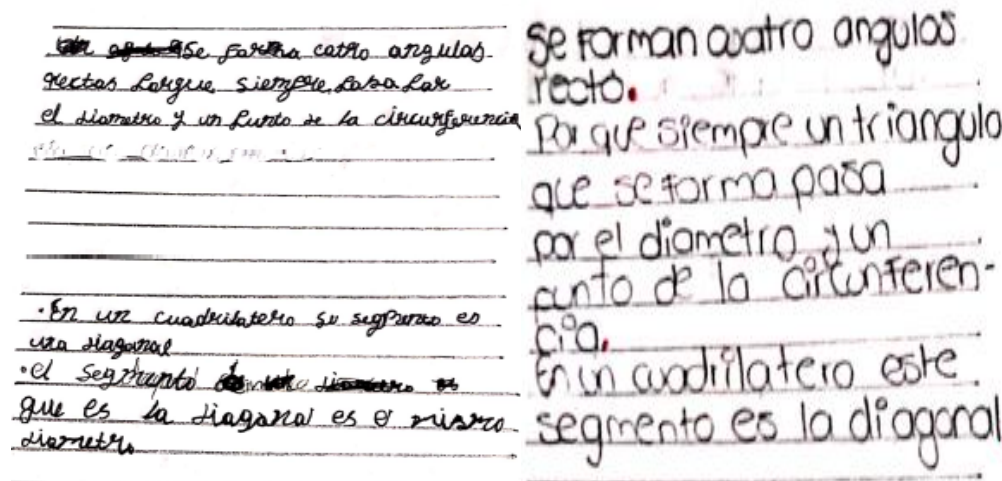 Se forma catro angulas
rectas porque siempre pasa por
el diametro y un punto de la circunferencia
.En un cuadrilatero su segmento es
una diagonal
.el segmento
que es la diagonal es el mismo
diametro
se forman cuatro angulos
recto.
Por que siempre un triangulo
que se forma pasa
por el diametro y un
punto de la circunferen-
cia.
En un cuadrilatero este
segmento es la diagonal